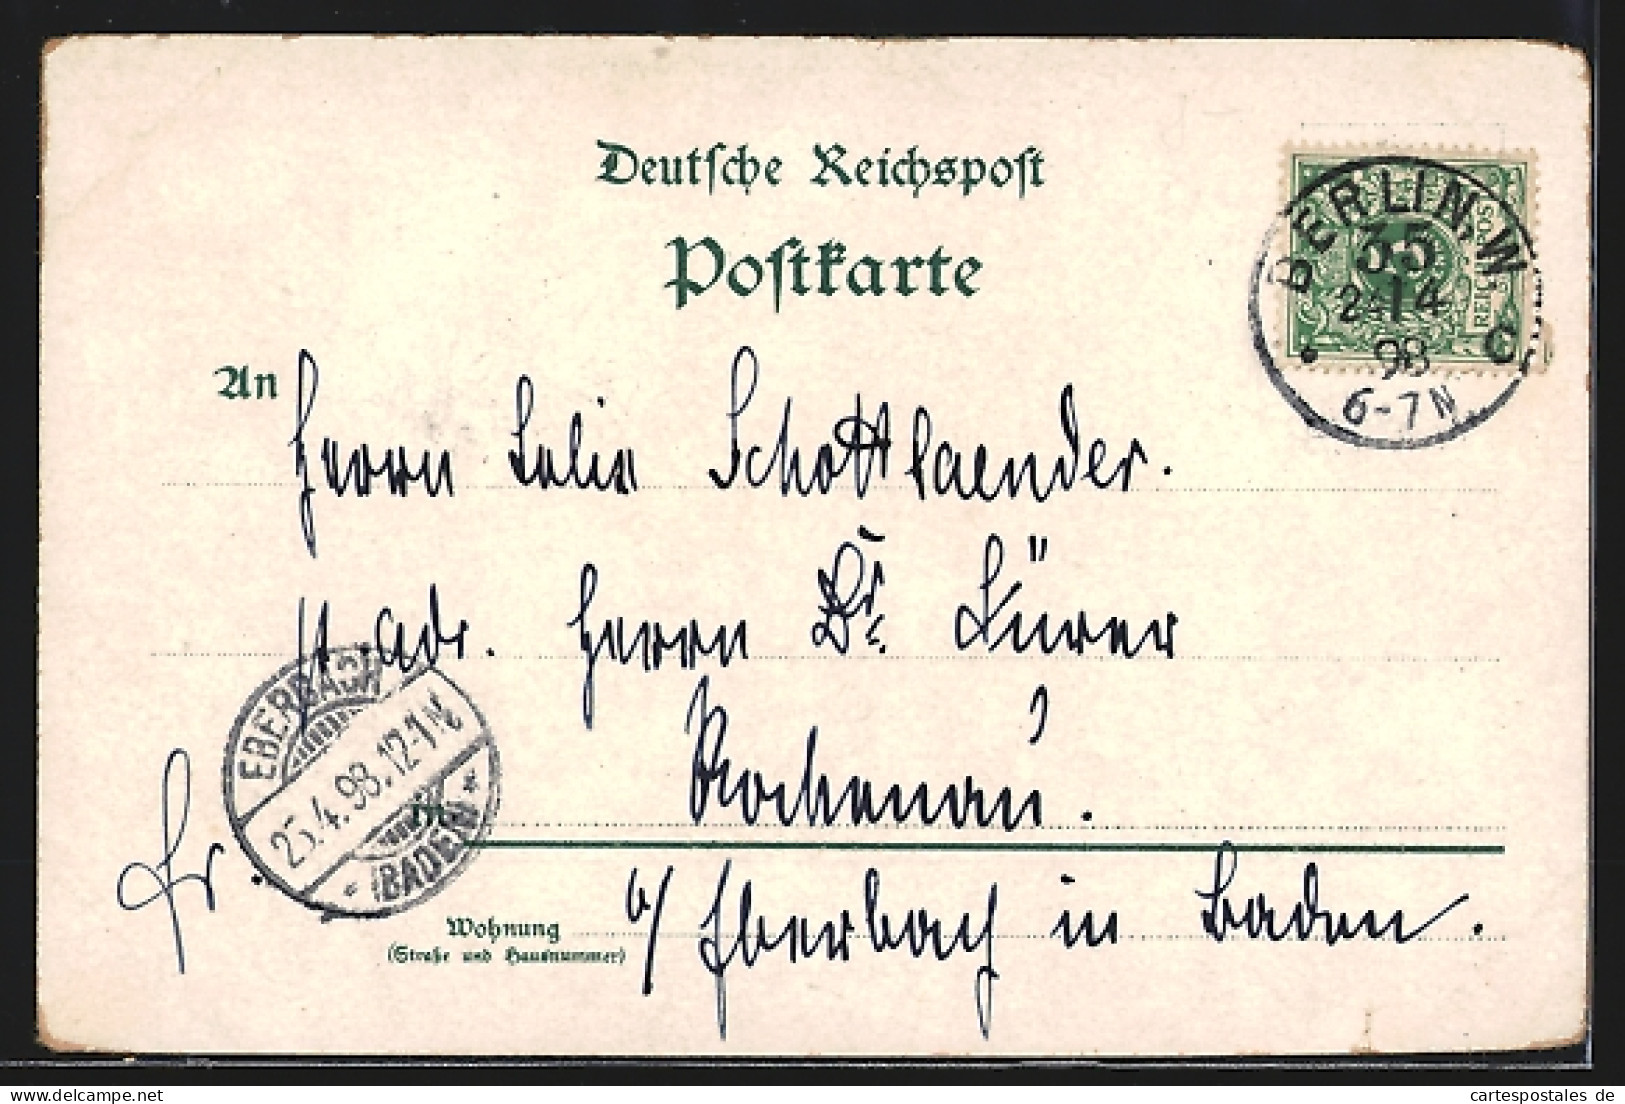 Deutsche Reichspost
Postkarte
BERLIN, W.
35
24/4
98
6-7N.
C
An
Herrn Schottlaender.
p. adr. Herrn Dr.
EBERBACH
25.4.98.12-1N
(BADEN)
in Rockenau.
Fr.
b/ Eberbach in Baden.
Wohnung
(Straße und Hausnummer)
cartespostales de